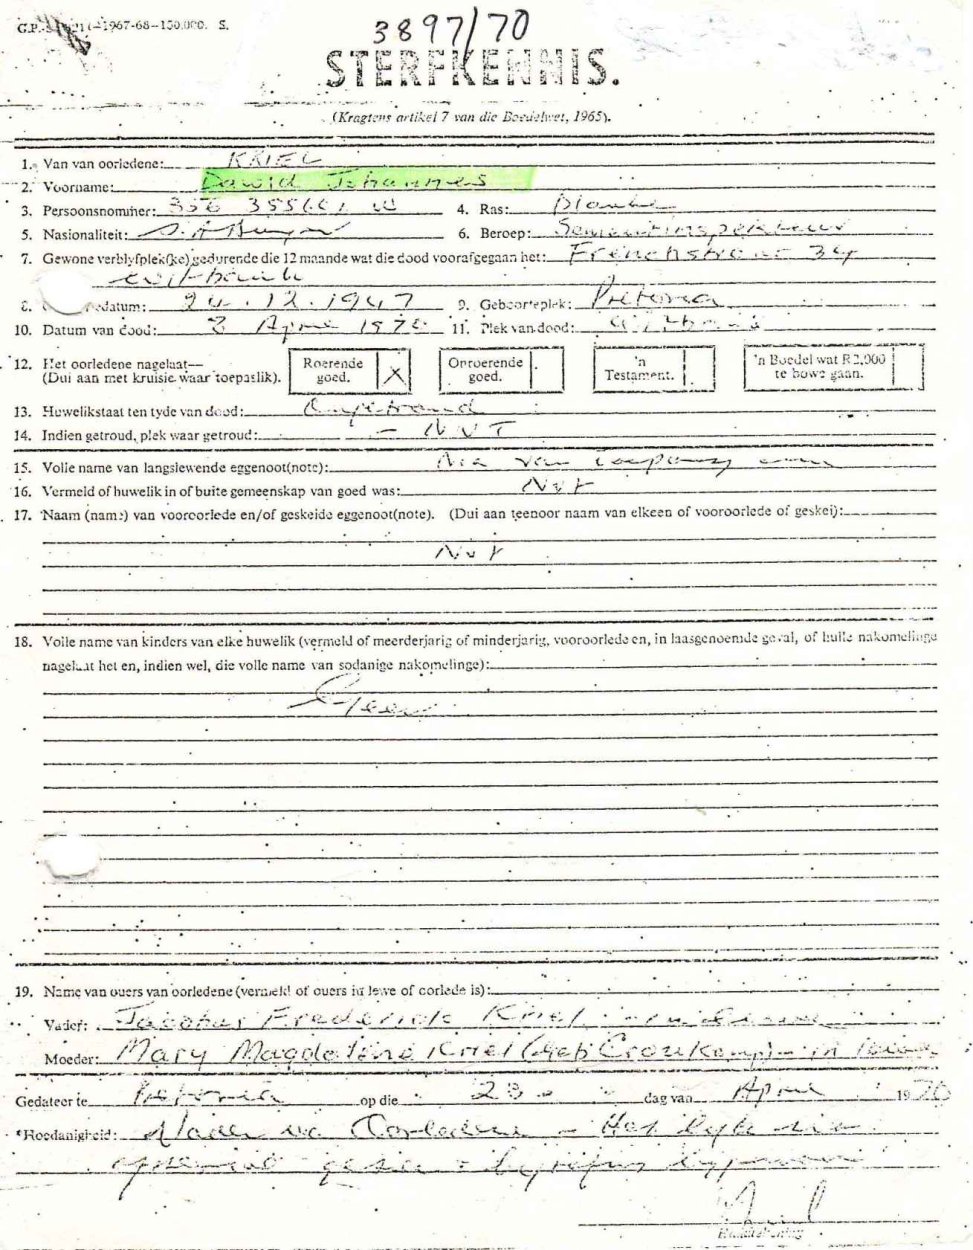 3897/70
STERFKENNIS.
(Kragtens artikel 7 van die Boedelwet, 1965).
1. Van van oorledene: KRIEL
2. Voorname: Dawid Johannes
3. Persoonsnommer: 4. Ras: Blanke
5. Nasionaliteit: S.A. Burger 6. Beroep:
7. Gewone verblyfplek(ke) gedurende die 12 maande wat die dood voorafgegaan het: 34
Witbank
8. datum: 24.12.1947 9. Geboorteplek: Pretoria
10. Datum van dood: April 1970 11. Plek van dood: Witbank
12. Het oorledene nagelaat—
(Dui aan met kruisie waar toepaslik).
Roerende goed. X
Onroerende goed.
'n Testament.
'n Boedel wat R2,000 te bowe gaan.
13. Huwelikstaat ten tyde van dood: Ongetroud
14. Indien getroud, plek waar getroud: - NVT
15. Volle name van langslewende eggenoot(note): Nie van toepassing
16. Vermeld of huwelik in of buite gemeenskap van goed was: NVT
17. Naam (name) van vooroorlede en/of geskeide eggenoot(note). (Dui aan teenoor naam van elkeen of vooroorlede of geskei):
NVT
18. Volle name van kinders van elke huwelik (vermeld of meerderjarig of minderjarig, vooroorlede en, in laasgenoemde geval, of hulle nakomelinge
nagelaat het en, indien wel, die volle name van sodanige nakomelinge):
Geen
19. Name van ouers van oorledene (vermeld of ouers in lewe of oorlede is):
Vader: Jacobus Frederick Kriel
Moeder: Mary Magdalene Kriel (geb Cronkamp) - in lewe
Gedateer te Pretoria op die 23 dag van April 1970
*Hoedanigheid: Vader van Oorledene - Het lyk